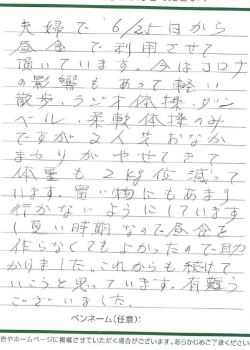 夫婦で 6/25日から
昼食で利用させて
頂いています。今はコロナ
の影響もあって軽い
散歩、ラジオ体操、ダン
ベル、柔軟体操のみ
ですが2人共おなか
まわりがやせてきて
体重も2kg位減って
います。買い物にもあまり
行かないようにしています
し夏い時期なので昼食を
作らなくてもよかったので助
かりました。これからも続けて
いこうと思っています。有難う
ございました。
ペンネーム(任意):
告やホームページに掲載させていただく場合がございます。あらかじめご了承ください